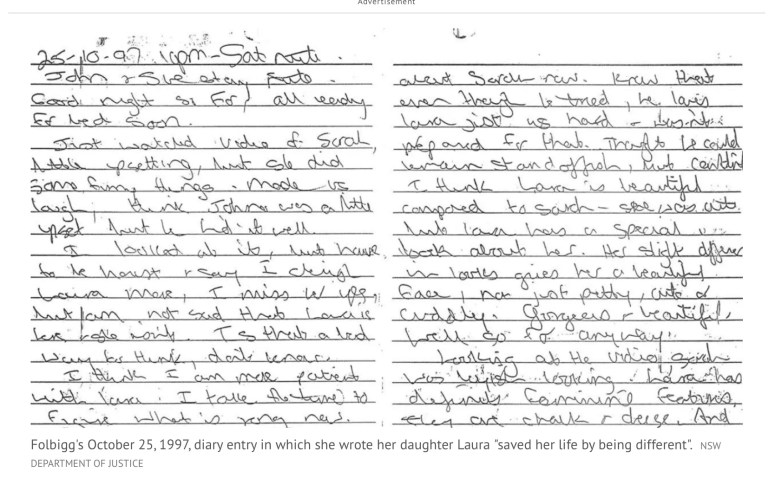 Advertisement
25-10-97. 10pm - Sat nite.
John & Sue stay Fate.
Good night so Far, all ready
For bed soon.
Just watched video of Sarah,
little upsetting, but she did
some funny things. made us
laugh, think Johns was a little
upset but he hid it well.
I looked at it, but have
to be honest & say I cherish
Laura more, I miss
but I am not sad that Laura is
here & she isnt. Is that a bad
way to think, dont know.
I think I am more patient
with Laura. I take the time to
Figure what is wrong now.
about Sarah now. know that
even though he tried, he loves
Laura just as hard -
prepared for that. Thought he could
remain standoffish, but couldnt
I think Laura is beautiful
compared to Sarah - she was cute.
but Laura has a special
look about her. Her slight differ
in looks gives her a beautiful
Face, not just pretty, cute or
cuddly. Gorgeous & beautiful,
well so far anyway.
Looking at the video, Sarah
was boyish looking. Laura has
definite Feminine Features,
they are chalk & cheese. And
Folbigg's October 25, 1997, diary entry in which she wrote her daughter Laura "saved her life by being different". NSW
DEPARTMENT OF JUSTICE